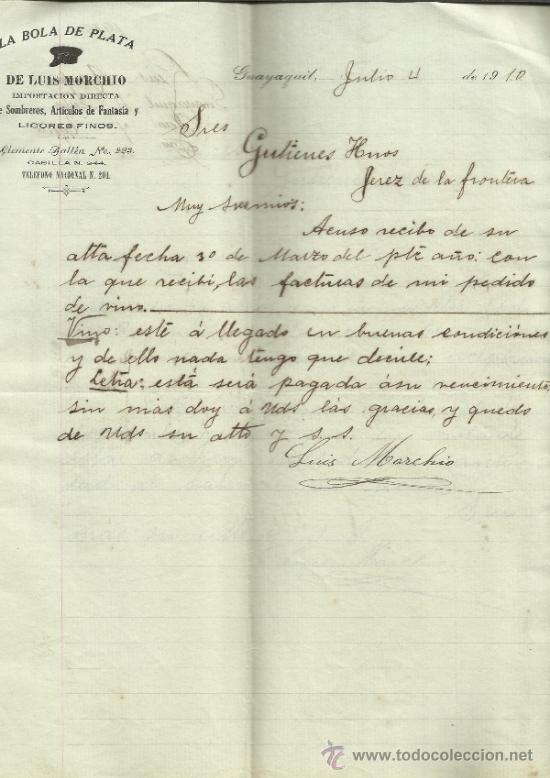 LA BOLA DE PLATA
DE LUIS MORCHIO
IMPORTACION DIRECTA
e Sombreros, Artículos de Fantasía y
LICORES FINOS.
Clemente Ballén No. 223.
CASILLA N. 244.
TELEFONO NACIONAL N. 201.
Guayaquil, Julio 4 de 1910
Sres
Gutierres Hnos
Jerez de la frontera
Muy Sres mios:
Acuso recibo de su
atta fecha 30 de Marzo del pte año: con
la que recibi, las facturas de mi pedido
de vino.
Vino: esté á llegado en buenas condiciónes
y de ello nada tengo que decirle;
Letra: está será pagada ásu vencimiento
sin mas doy á Uds lás gracias, y quedo
de Uds su atto y s.s.
Luis Morchio
todocoleccion
www.todocoleccion.net